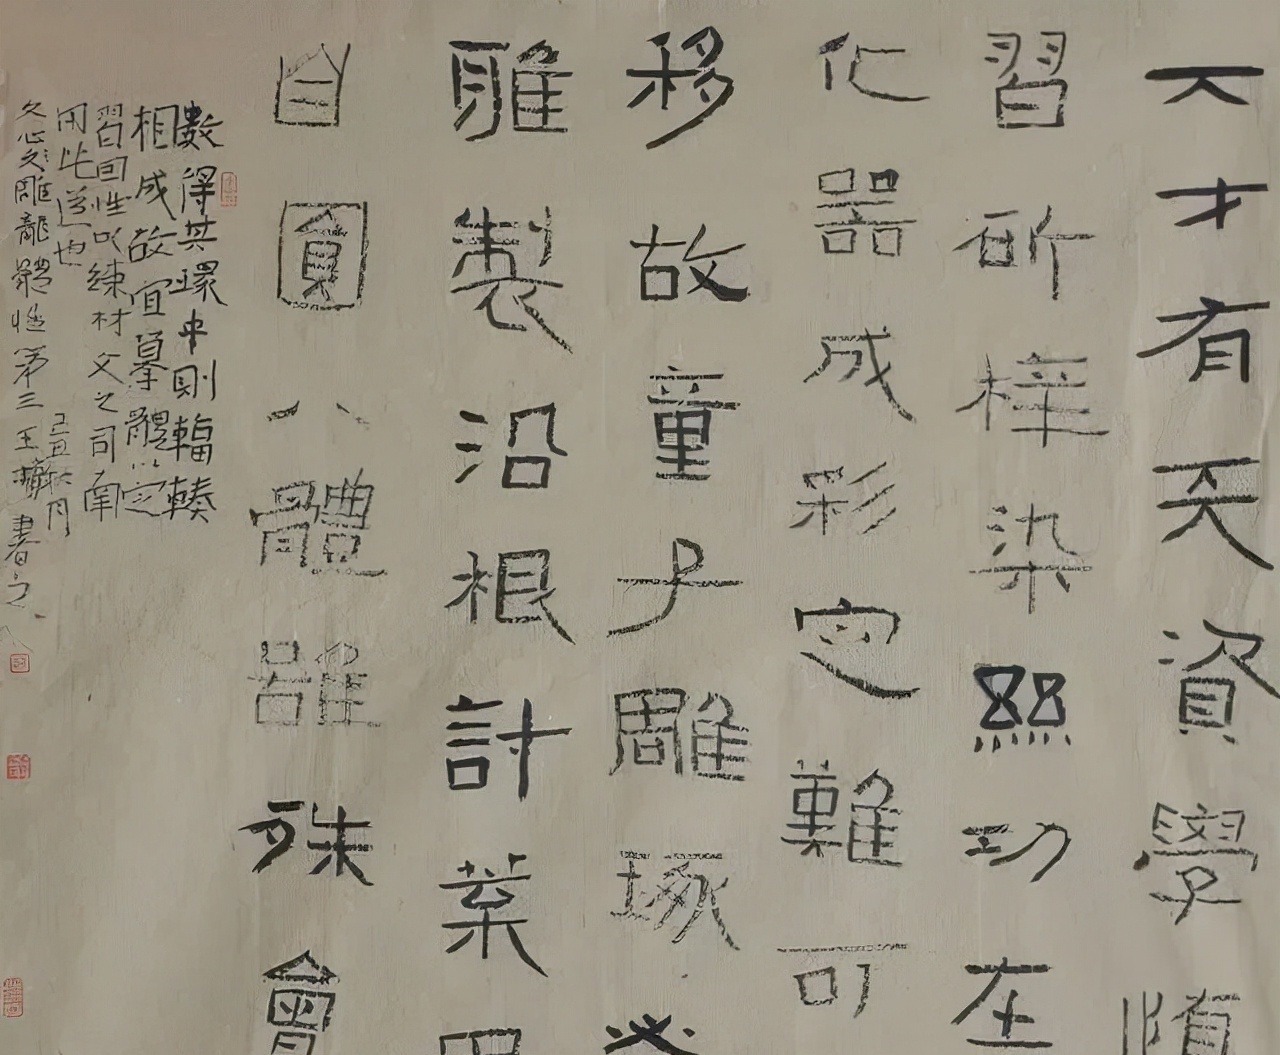 大才有天資學慎
習斫梓染絲功在
化器成彩定難可
移故童子雕琢必
雅製沿根討葉
自圓八體雖殊會
數得其環中則輻輳
相成故宜摹體以定
習因性以練材文之司南
用此道也
己丑秋月
文心雕龍體性第三 王鏞書之